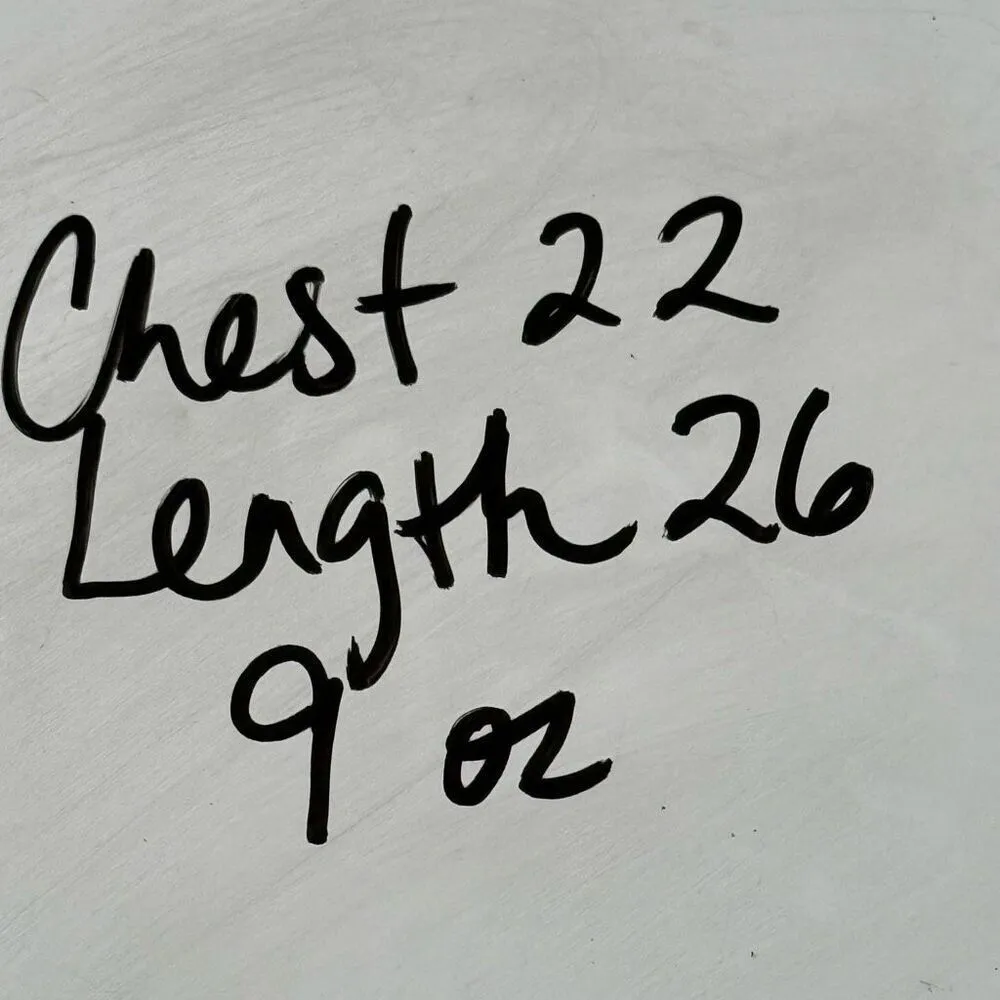 Chest 22
Length 26
9 oz